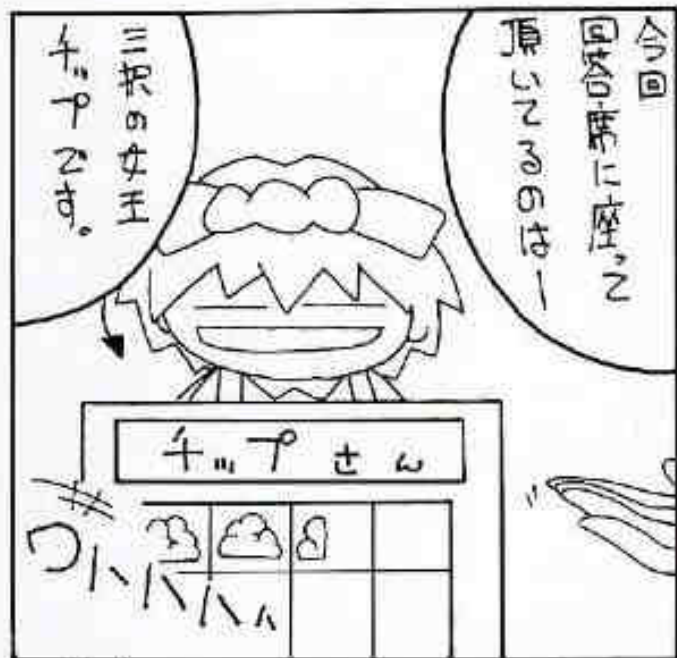 今回
回答席に座って
頂いてるのはー
三択の女王
チップです。
チップさん
ワハハハハ